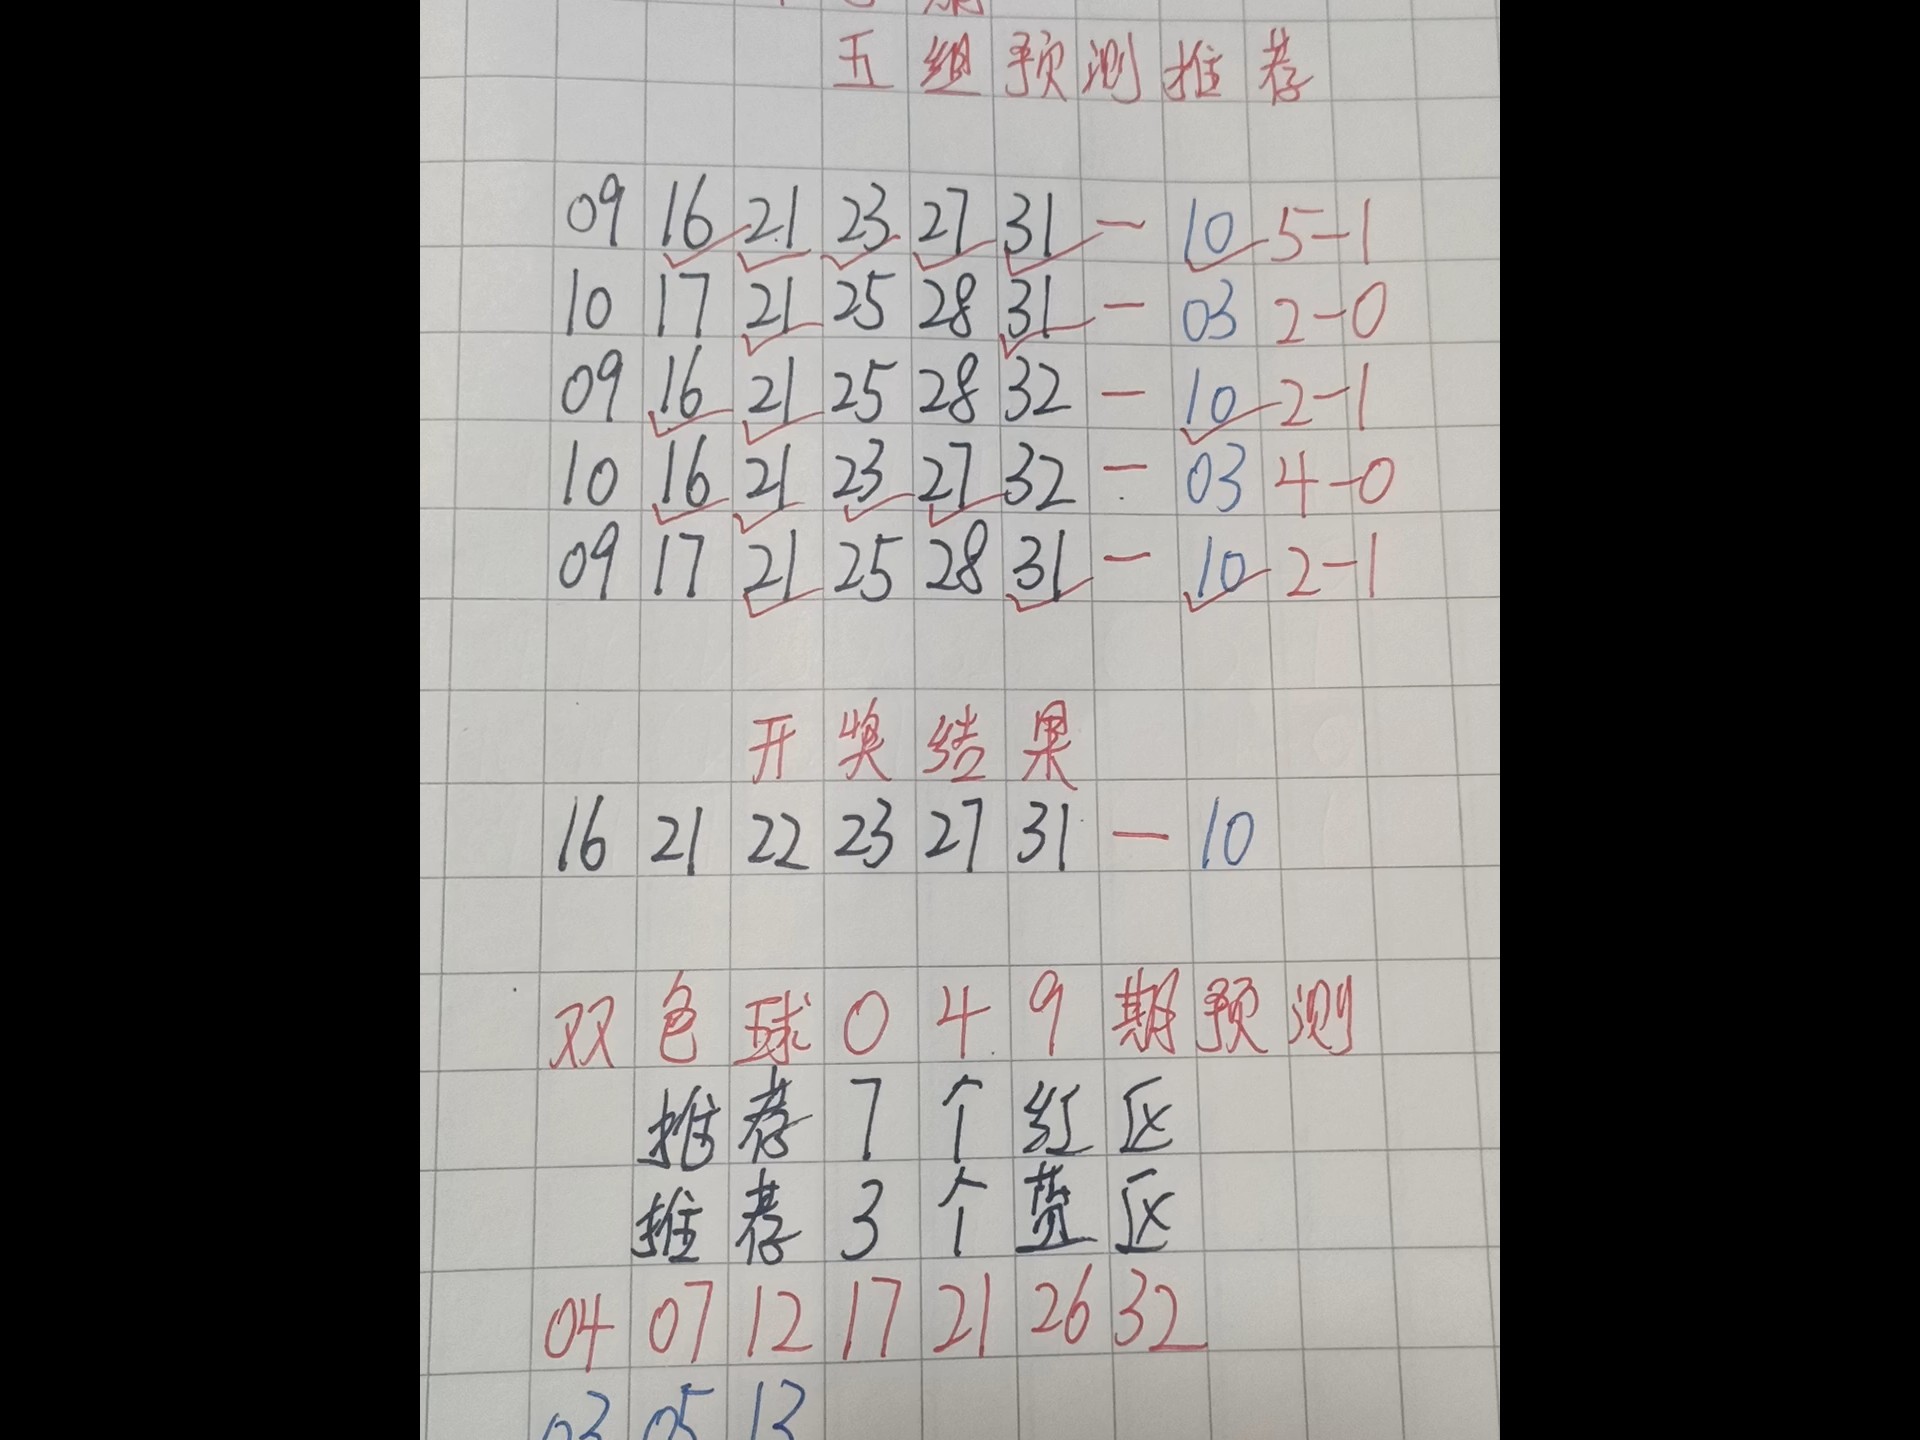 五组预测推荐
09 16 21 23 27 31 - 10 5-1
10 17 21 25 28 31 - 03 2-0
09 16 21 25 28 32 - 10 2-1
10 16 21 23 27 32 - 03 4-0
09 17 21 25 28 31 - 10 2-1
开奖结果
16 21 22 23 27 31 - 10
双色球049期预测
推荐7个红区
推荐3个蓝区
04 07 12 17 21 26 32
03 05 13